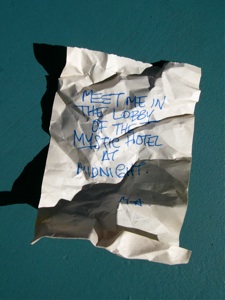 MEET ME IN
THE LOBBY
OF THE
MYSTIC HOTEL
AT
MIDNIGHT.